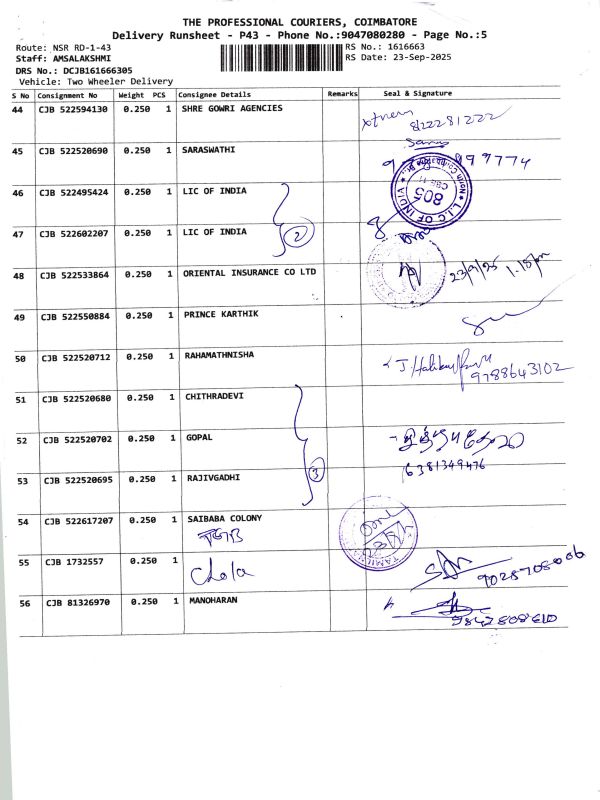 THE PROFESSIONAL COURIERS, COIMBATORE
Delivery Runsheet - P43 - Phone No.:9047080280 - Page No.:5
Route: NSR RD-1-43 RS No.: 1616663
Staff: AMSALAKSHMI RS Date: 23-Sep-2025
DRS No.: DCJB161666305
Vehicle: Two Wheeler Delivery
S No Consignment No Weight PCS Consignee Details Remarks Seal & Signature
44 CJB 522594130 0.250 1 SHRE GOWRI AGENCIES
8222281222
45 CJB 522520690 0.250 1 SARASWATHI
46 CJB 522495424 0.250 1 LIC OF INDIA
L.I.C OF INDIA
805
47 CJB 522602207 0.250 1 LIC OF INDIA
2
48 CJB 522533864 0.250 1 ORIENTAL INSURANCE CO LTD
23/9/25 1.15pm
49 CJB 522550884 0.250 1 PRINCE KARTHIK
50 CJB 522520712 0.250 1 RAHAMATHNISHA
9788643102
51 CJB 522520680 0.250 1 CHITHRADEVI
52 CJB 522520702 0.250 1 GOPAL
6381349476
53 CJB 522520695 0.250 1 RAJIVGADHI
3
54 CJB 522617207 0.250 1 SAIBABA COLONY
55 CJB 1732557 0.250 1
Chola
56 CJB 81326970 0.250 1 MANOHARAN